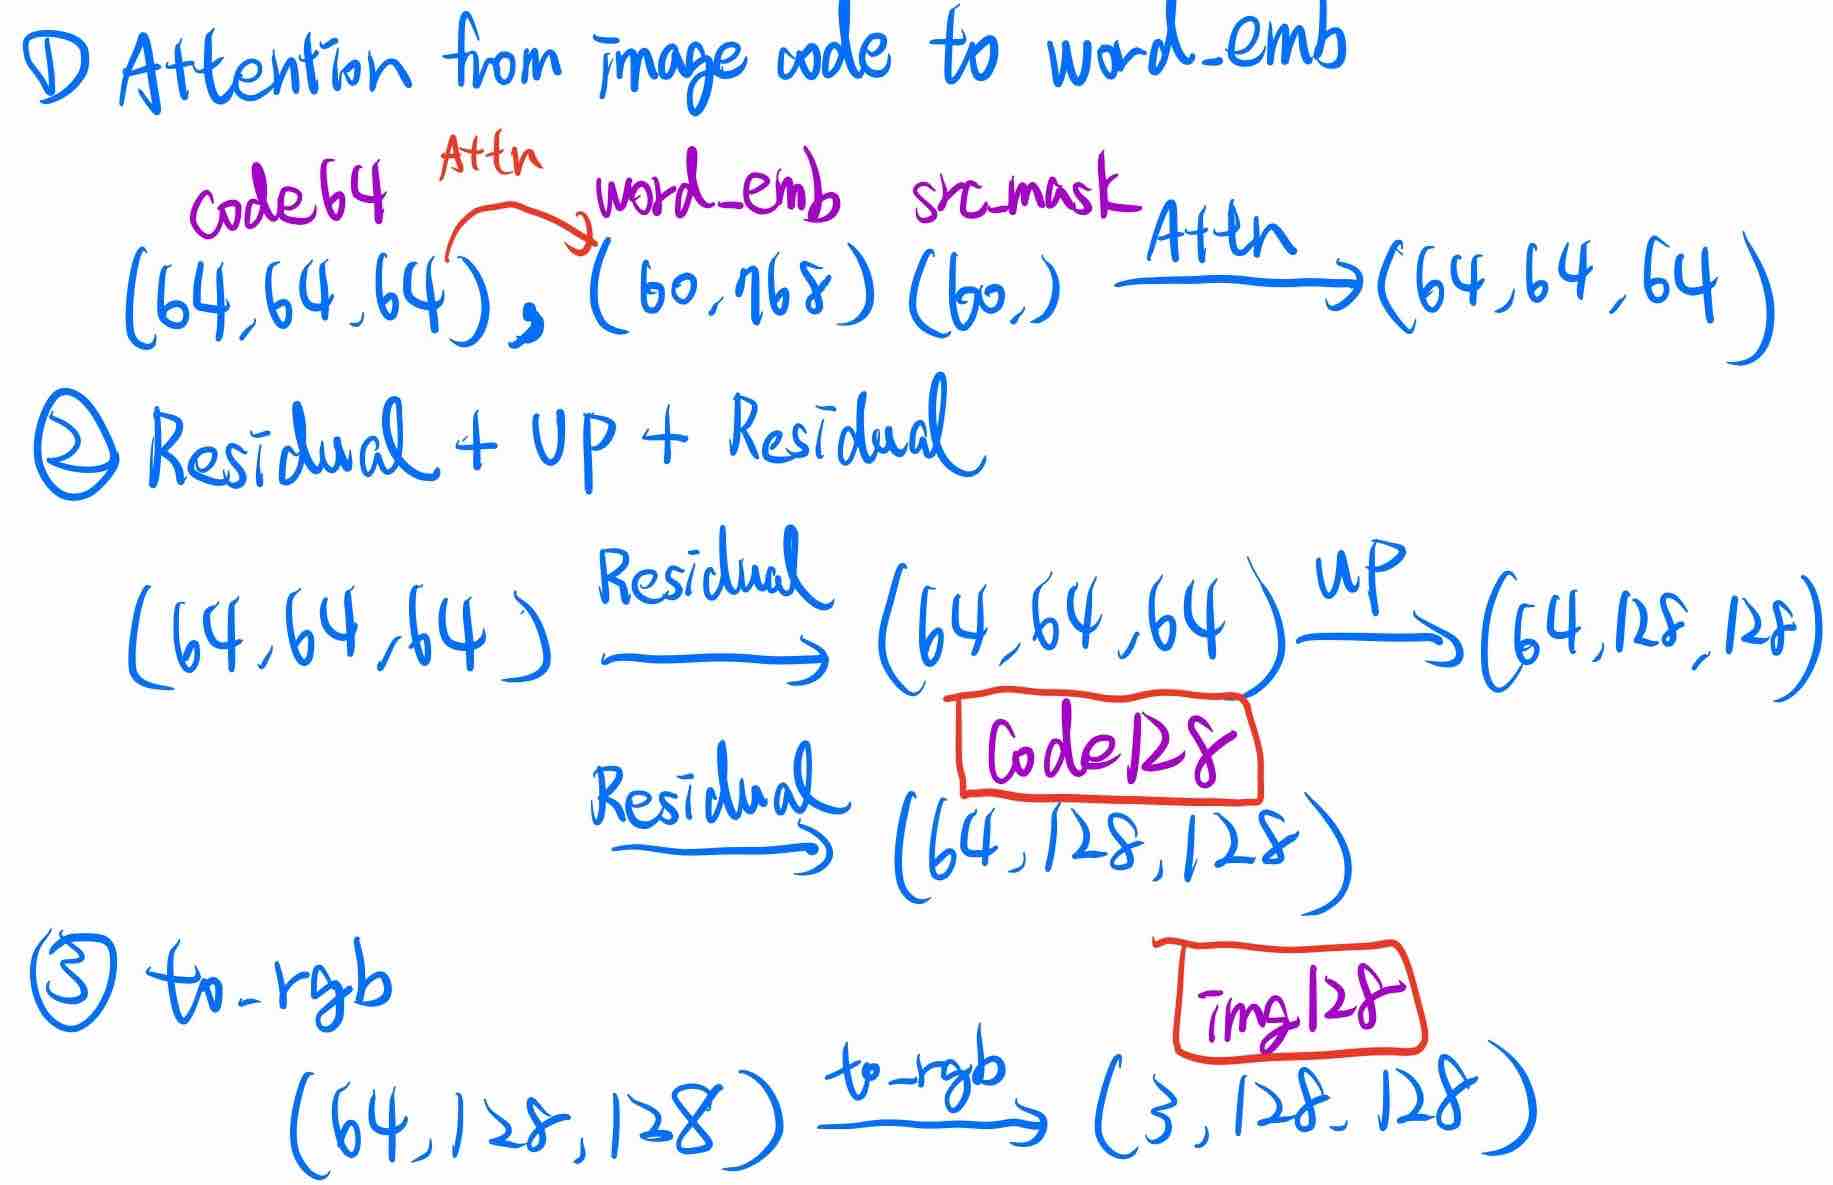 ① Attention from image code to word_emb
code64 Attn word_emb src_mask Attn
(64,64,64), (60,768) (60,) (64,64,64)
② Residual + UP + Residual
Residual UP
(64,64,64) (64,64,64) (64,128,128)
Code128
Residual (64,128,128)
③ to_rgb
img128
(64,128,128) to_rgb (3,128,128)